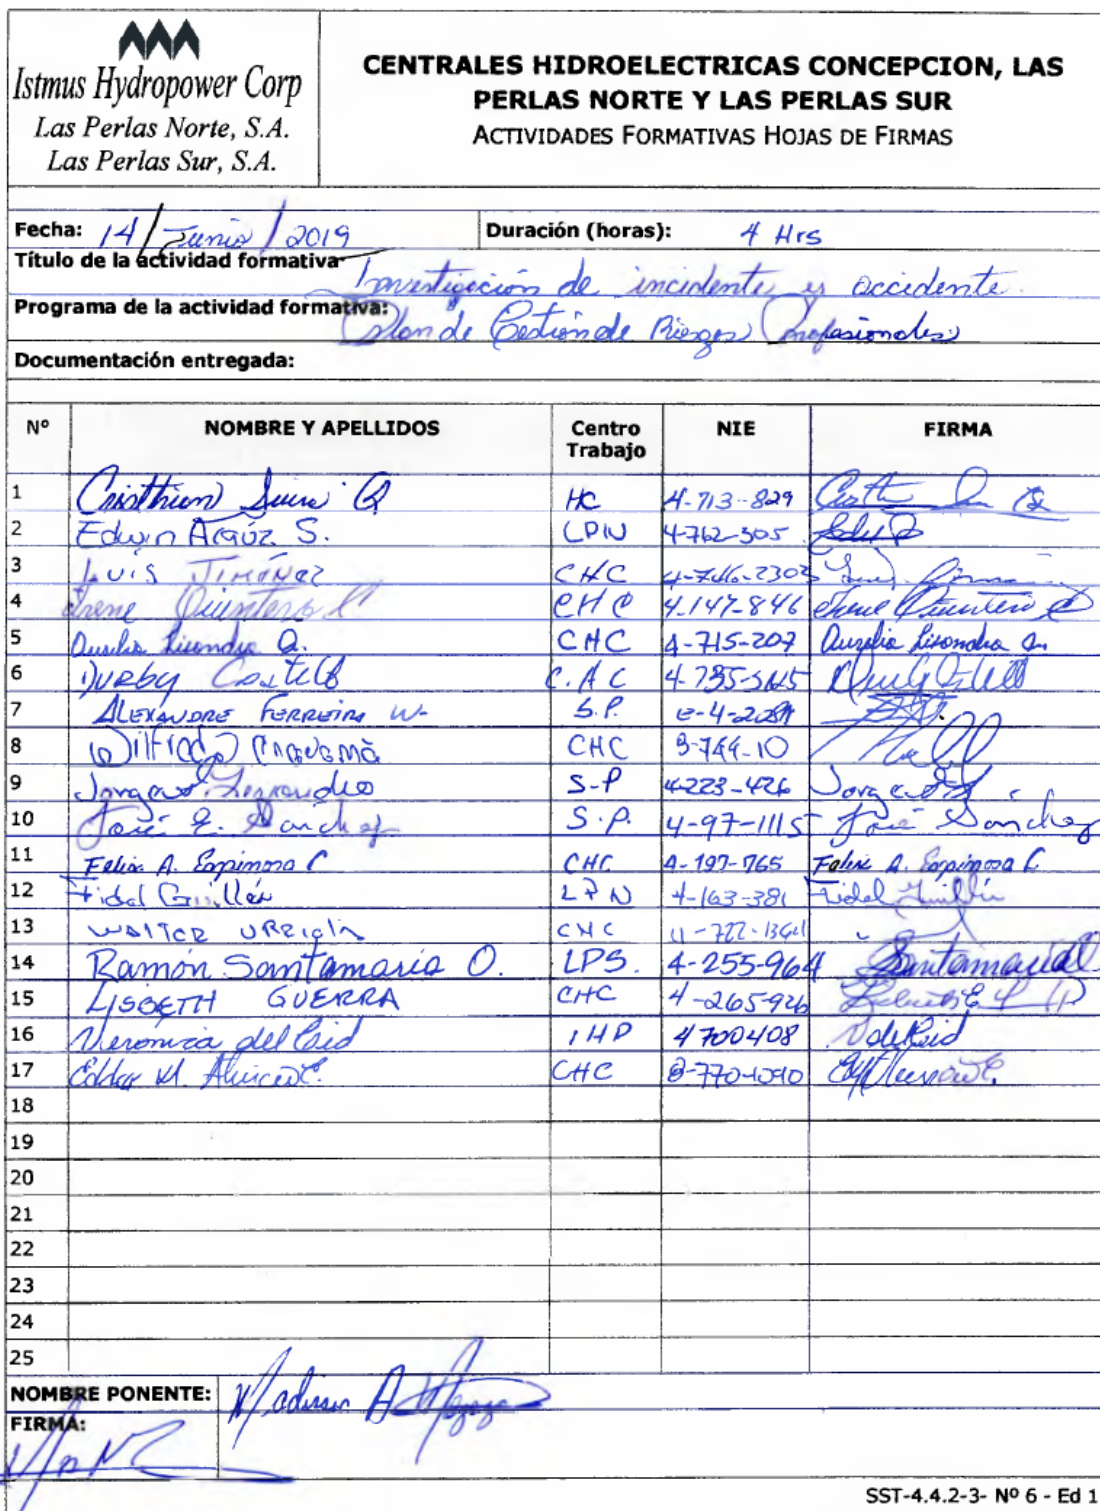 Istmus Hydropower Corp
Las Perlas Norte, S.A.
Las Perlas Sur, S.A.
CENTRALES HIDROELECTRICAS CONCEPCION, LAS
PERLAS NORTE Y LAS PERLAS SUR
ACTIVIDADES FORMATIVAS HOJAS DE FIRMAS
Fecha: 14/Junio/2019 Duración (horas): 4 Hrs
Título de la actividad formativa Investigación de incidente y accidente
Programa de la actividad formativa: Plan de Gestión de Riesgos Profesionales
Documentación entregada:
Nº NOMBRE Y APELLIDOS Centro Trabajo NIE FIRMA
1 Cristhian Q HC 4-713-829
2 Edwin Araúz S. LPN 4-762-305
3 Luis Jiménez CHC 4-746-2302
4 Irene Quintero CHC 4-147-846 Irene Quintero
5 Aurelia Lisondro Q. CHC 4-715-207 Aurelia Lisondro
6 Durby Castillo C.A C 4-735-
7 ALEXANDRE FERREIRA W. S.P.
8 Wilfredo CHC 9-744-10
9 Jorge S-P 4-223-426 Jorge
10 José E. Sanchez S.P. 4-97-1115 José Sanchez
11 Felix A. Espinosa C CHC 4-197-765 Felix A. Espinosa C
12 Fidel Guillén LPN 4-163-381 Fidel Guillén
13 WALTER URRIOLA CHC
14 Ramón Santamaria O. LPS. 4-255-964 Santamaria
15 LISBETH GUERRA CHC 4-265-926
16 Veronica del Cid IHP 4700408 V del Cid
17 Eddar M. CHC 8-770-1090
18
19
20
21
22
23
24
25
NOMBRE PONENTE: Madison A
FIRMA:
SST-4.4.2-3- Nº 6 - Ed 1